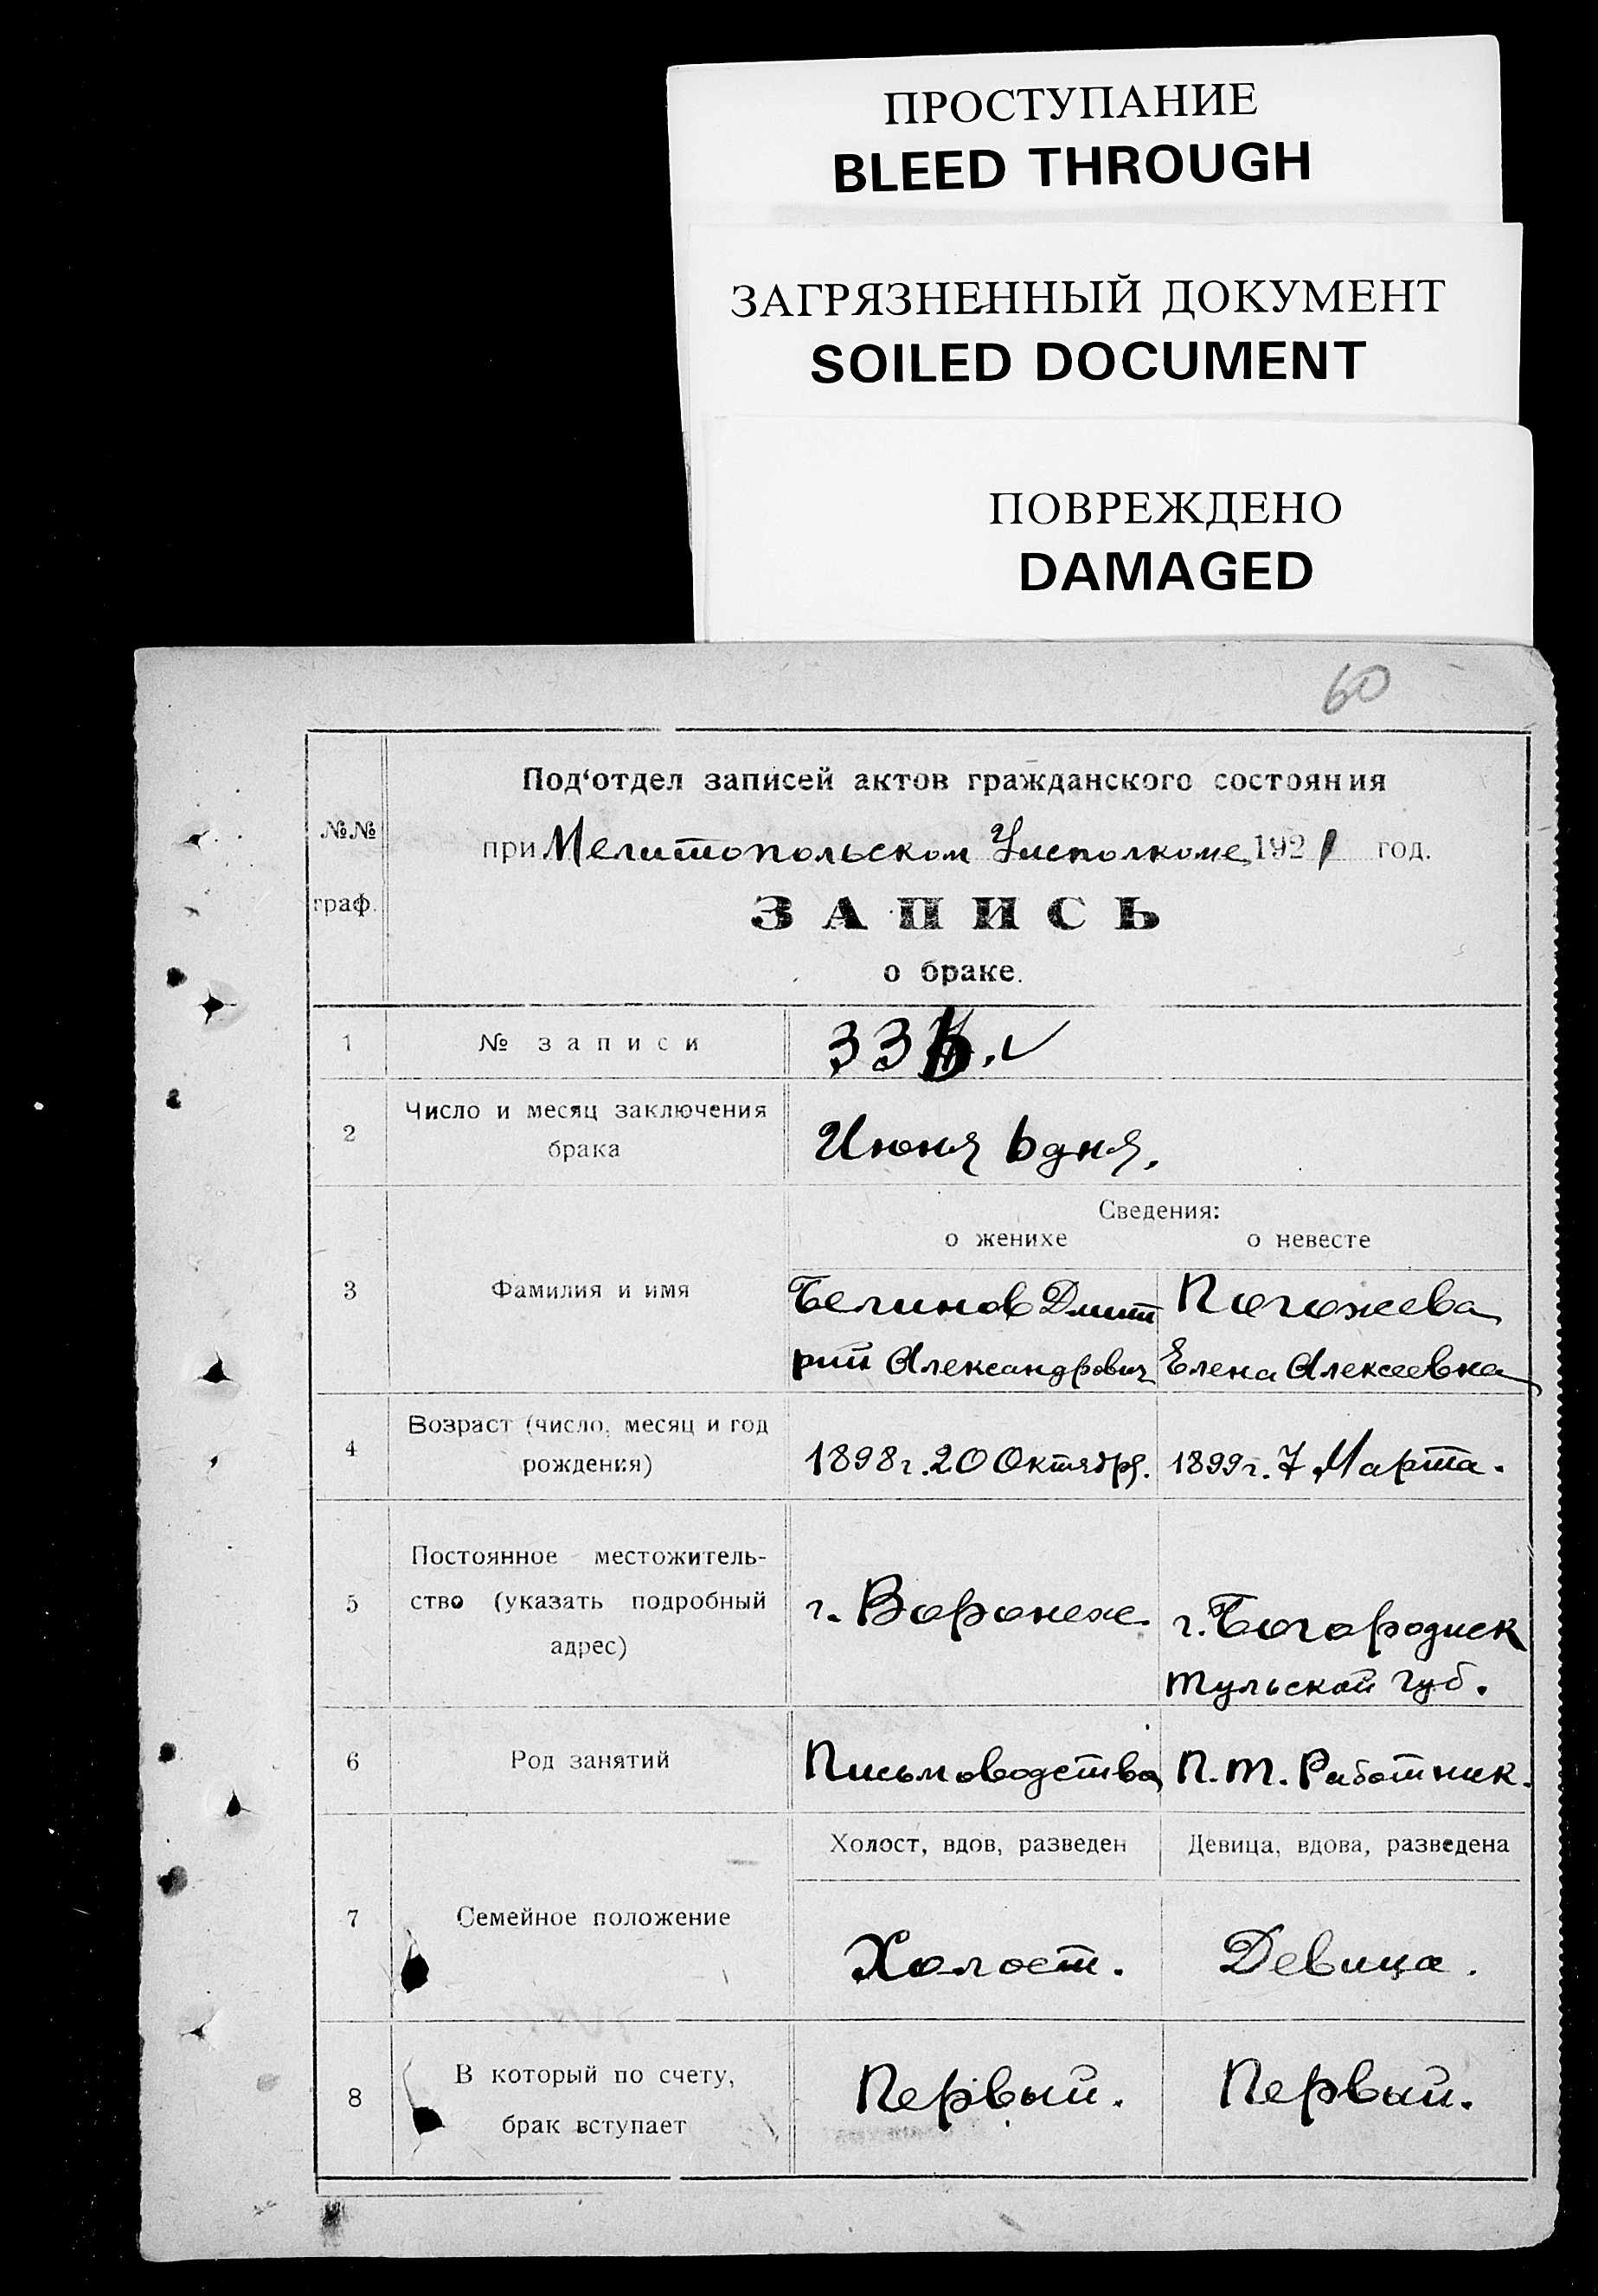 ПРОСТУПАНИЕ
BLEED THROUGH
ЗАГРЯЗНЕННЫЙ ДОКУМЕНТ
SOILED DOCUMENT
ПОВРЕЖДЕНО
DAMAGED
60
№№ граф.
Под‘отдел записей актов гражданского состояния
при Мелитопольском Уисполкоме 1921 год.
ЗАПИСЬ
о браке.
1 № записи 33
2 Число и месяц заключения
брака
Июня 6 дня.
Сведения:
о женихе о невесте
3 Фамилия и имя
Белинов Дмит
рий Александрович
Погожева
Елена Алексеевна
4 Возраст (число, месяц и год
рождения)
1898 г. 20 Октября. 1899 г. 7 Марта.
5 Постоянное местожитель-
ство (указать подробный
адрес)
г. Воронеж.
г. Богородиск
Тульской губ.
6 Род занятий Письмоводства П. Т. Работник.
Холост, вдов, разведен Девица, вдова, разведена
7 Семейное положение
Холост. Девица.
8 В который по счету,
брак вступает
Первый. Первый.